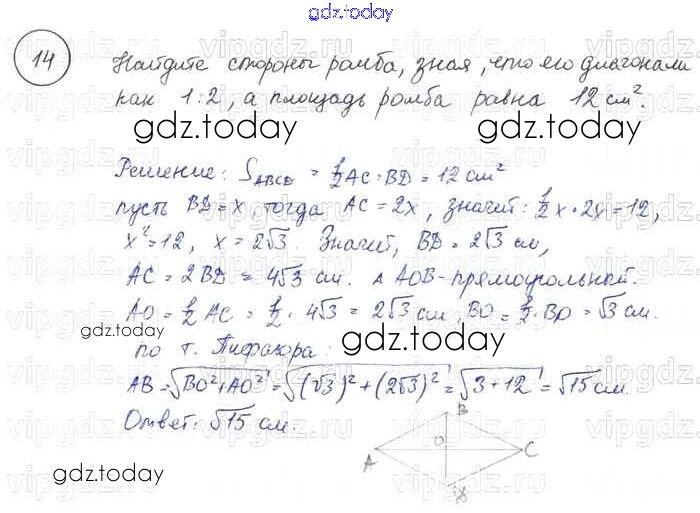 gdz.today
14
Найдите стороны ромба, зная, что его диагонали
как 1:2, а площадь ромба равна 12 см².
gdz.today
gdz.today
Решение: S_ABCD = 1/2 AC · BD = 12 см²
пусть BD = x, тогда AC = 2x, значит: 1/2 x · 2x = 12,
x² = 12, x = 2√3. Значит, BD = 2√3 см,
AC = 2BD = 4√3 см. Δ AOB - прямоугольной.
AO = 1/2 AC = 1/2 · 4√3 = 2√3 см, BO = 1/2 · BD = √3 см.
gdz.today
gdz.today
по т. Пифагора:
AB = √BO² + AO² = √(√3)² + (2√3)² = √3 + 12 = √15 см.
Ответ: √15 см.
B
O
A
C
gdz.today
gdz.today